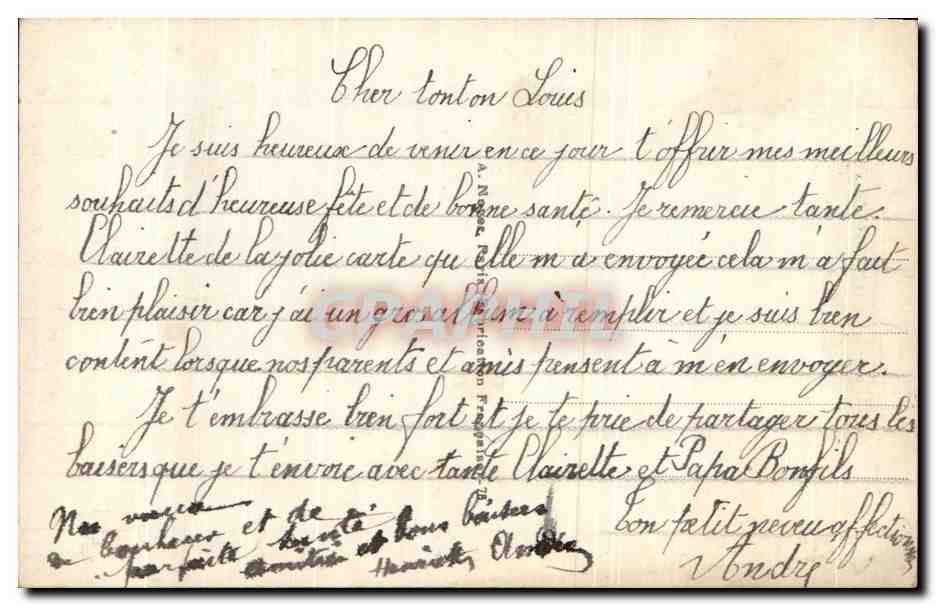 Cher tonton Louis
Je suis heureux de venir en ce jour t'offrir mes meilleurs
souhaits d'heureuse fête et de bonne santé. Je remercie tante
Clairette de la jolie carte qu'elle m'a envoyée cela m'a fait
bien plaisir car j'ai un gros album à remplir et je suis bien
content lorsque nos parents et amis pensent à m'en envoyer.
Je t'embrasse bien fort et je te prie de partager tous les
baisers que je t'envoie avec tante Clairette et Papa Bonfils
ton petit neveu affectionné
André
Nos vœux
de bonheur et de
parfaite santé
amitiés et bons baisers
Henriette André
A. Noyer, Paris Fabrication Française
GRAPHIL